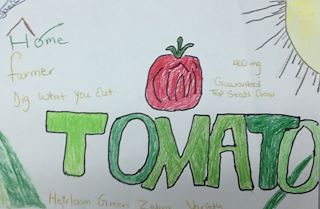 Home
farmer
Dig What You Eat
400 mg
Guaranteed
Top Seeds Grow
TOMATO
Heirloom Green Zebra Variety